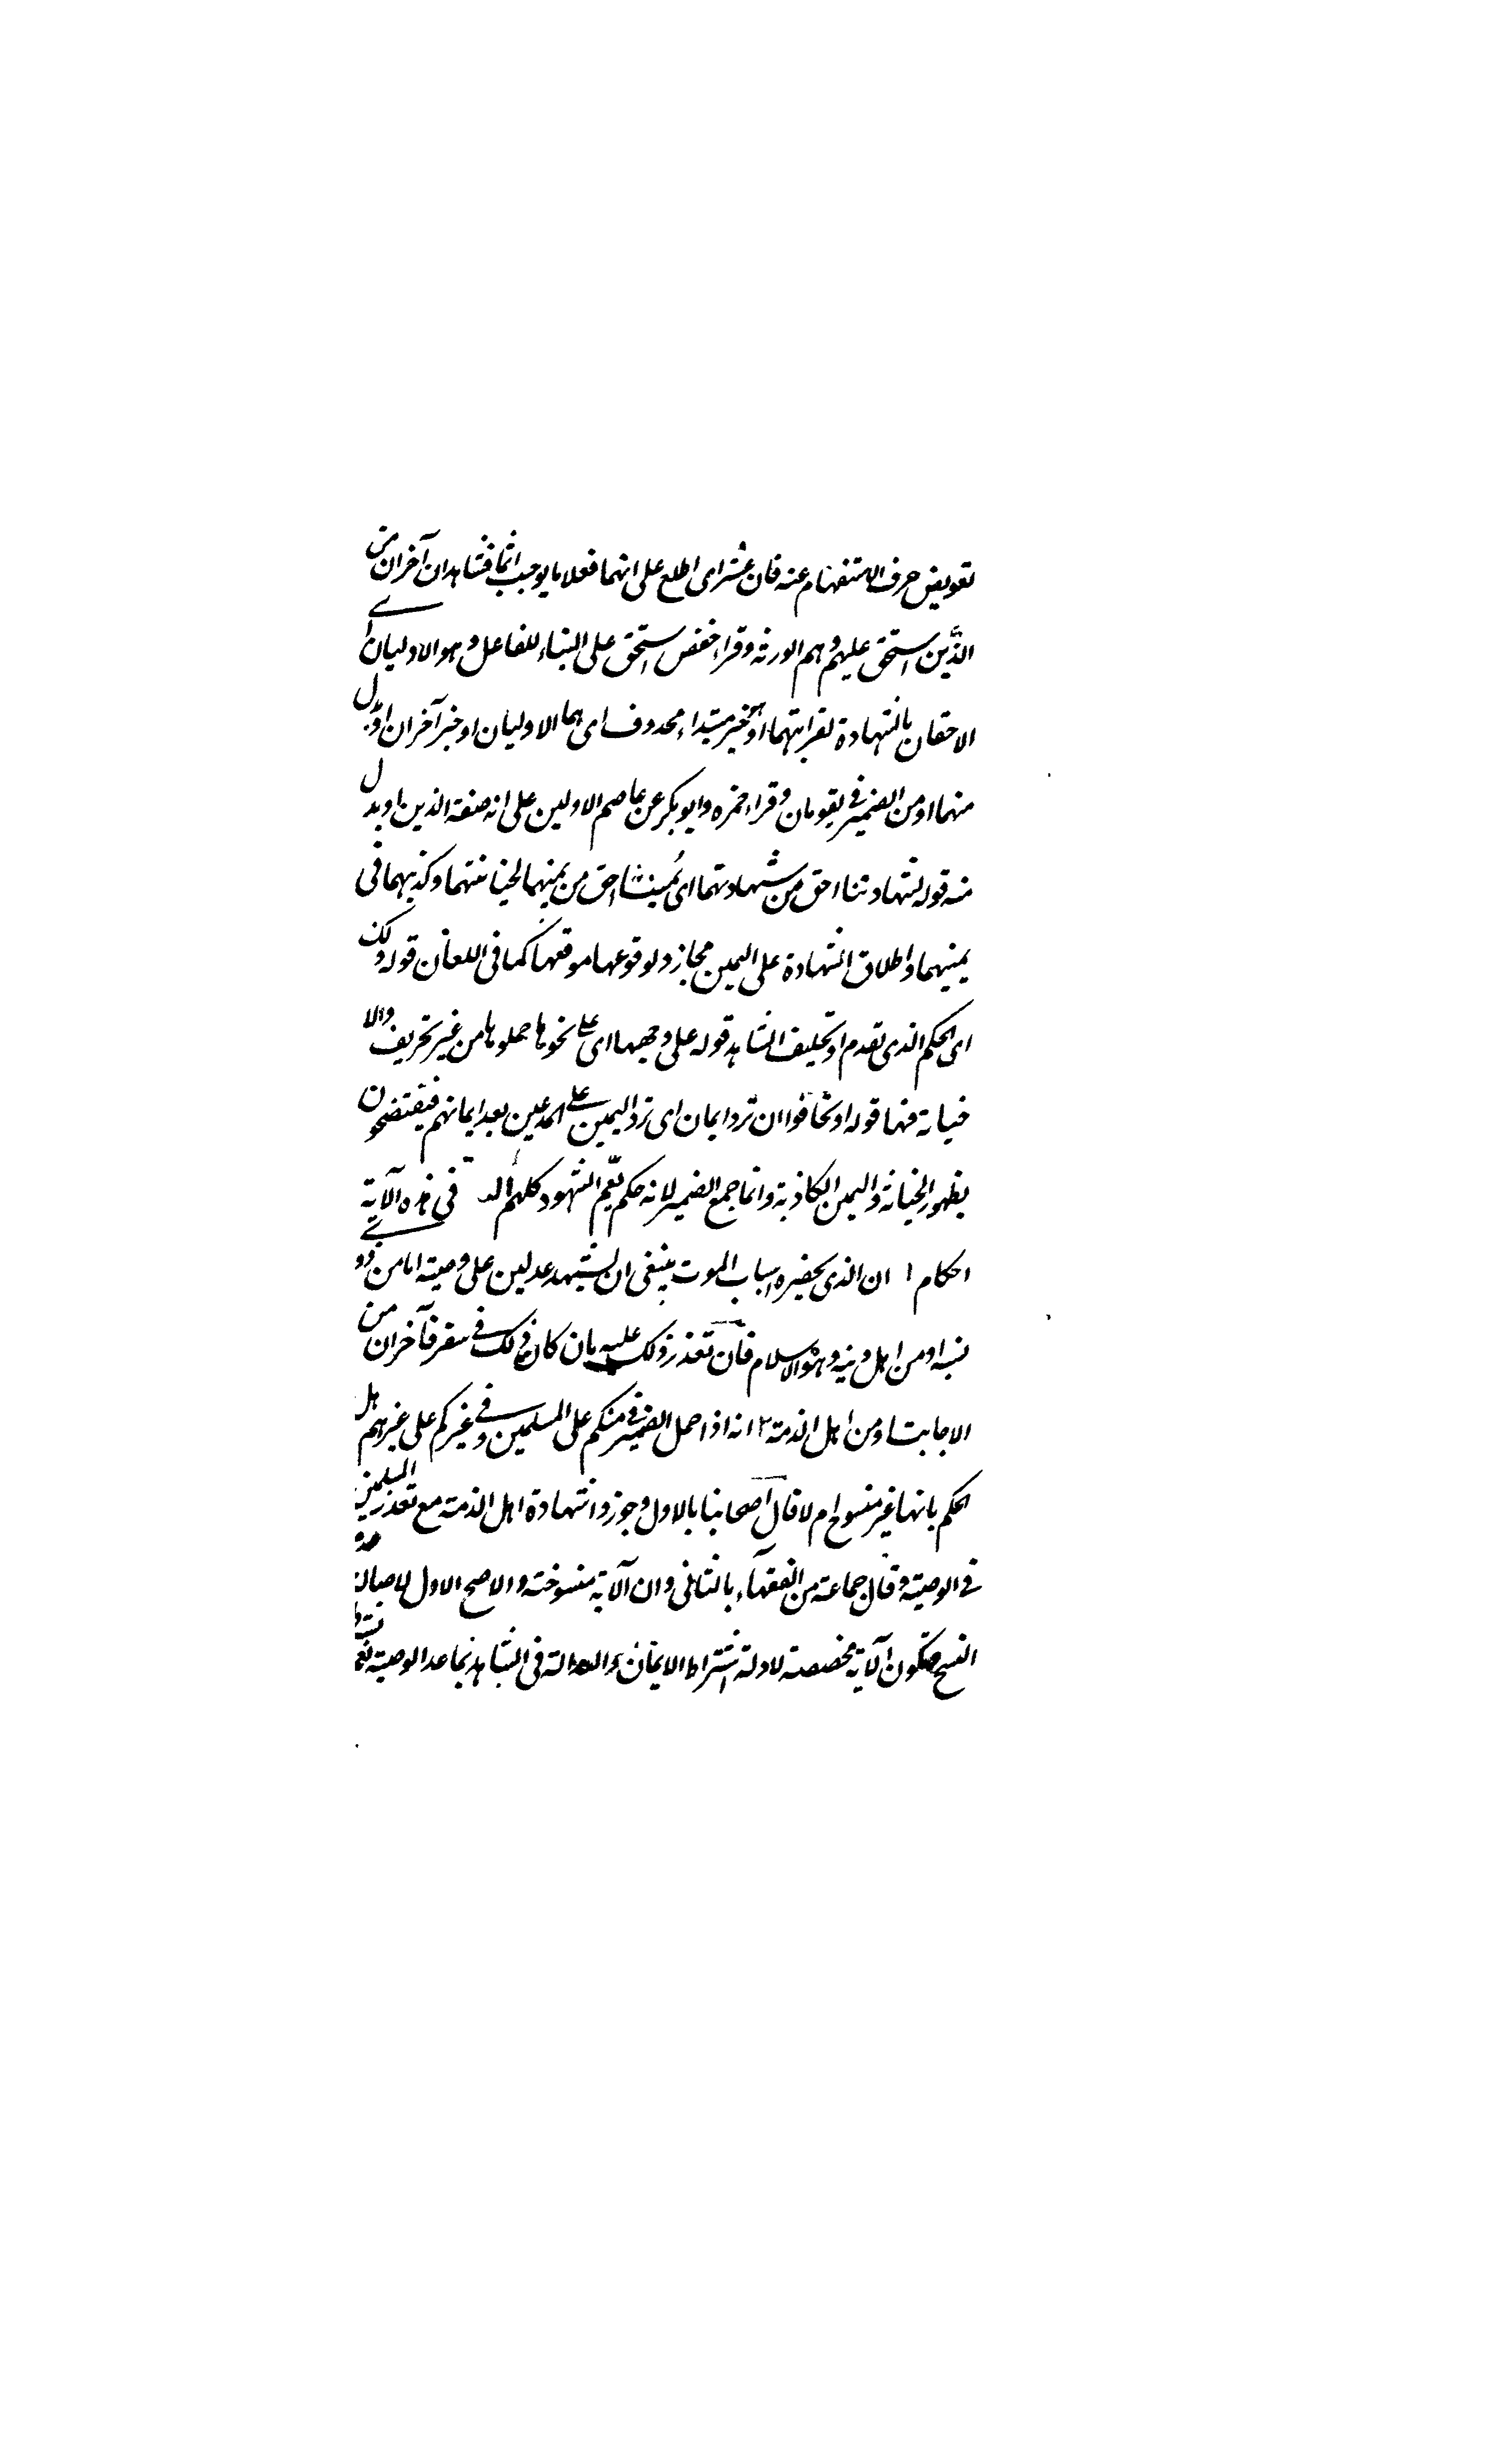 تعويض حرف الاستفهام عنه فان عثر اى اطلع على انهما فعلا ما يوجب اثما فشاهدان آخران من
الذين استحق عليهم وهم الورثة وقراء حفص استحق على البناء للفاعل وهو الاوليان اى
الاحقان بالشهادة لقرابتهما وهو خبر مبتداء محذوف اى هما الاوليان او خبر آخران او بدل
منهما او من الضمير فى يقومان وقراء حمزه وابو بكر عن عاصم الاولين على انه صفة الذين او بدل
منه قوله لشهادتنا احق من شهادتهما اى يميننا احق من يمينهما لخيانتهما وكذبهما فى
يمينهما واطلاق الشهادة على اليمين مجاز لوقوعها موقعها كما فى اللعان قوله ذلك
اى الحكم الذى تقدم او تحليف الشاهد قوله على وجهها اى على نحو ما حملوها من غير تحريف ولا
خيانة فيها قوله او يخافوا ان ترد ايمان اى ترد اليمين على المدعين بعد ايمانهم فيفتضحون
بظهور الخيانة واليمين الكاذبة وانما جمع الضمير لانه حكم يعم الشهود كلهم فى هذه الآية
احكام ١ ان الذى يحضره اسباب الموت ينبغى ان يشهد عدلين على وصيته اما من ذوى
نسبه او من اهل دينه وهو الاسلام فان تعذر ذلك عليه بان كان ذلك فى سفر فآخران من
الاجانب او من اهل الذمة ٢ انه اذا حمل الضمير فى منكم على المسلمين وفى غيركم على غيرهم هل
الحكم بانها غير منسوخ ام لا قال اصحابنا بالاول وجوزوا شهادة اهل الذمة مع تعذر المسلمين
فى الوصية وقال جماعة من الفقهاء بالثانى وان الآية منسوخة والاصح الاول لاصالة عدم
النسخ فتكون الآية مخصصة لادلة اشتراط الايمان والعدالة فى الشاهد بما عدا الوصية